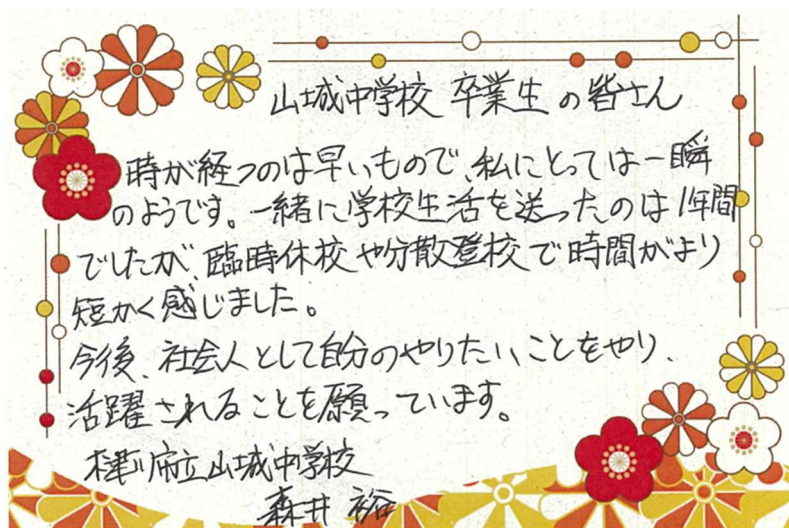 山城中学校 卒業生の皆さん
時が経つのは早いもので、私にとっては一瞬
のようです。一緒に学校生活を送ったのは1年間
でしたが、臨時休校や分散登校で時間がより
短かく感じました。
今後、社会人として自分のやりたいことをやり、
活躍されることを願っています。
木津川市立山城中学校
森井 裕